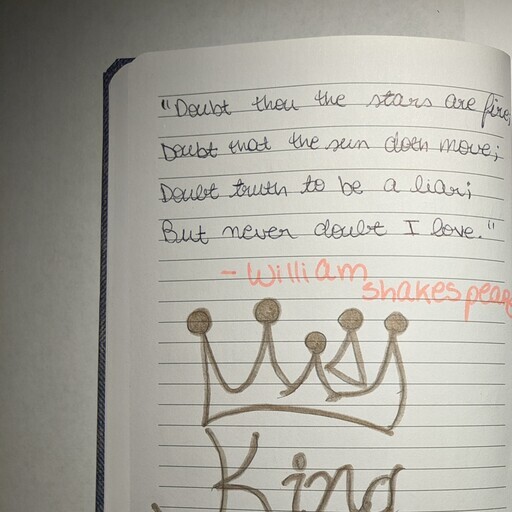 "Doubt thou the stars are fire,
Doubt that the sun doth move;
Doubt truth to be a liar;
But never doubt I love."
- William
Shakespeare
King